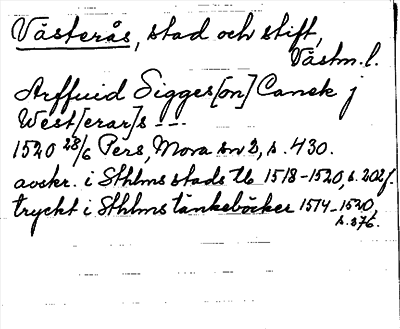 Västerås, stad och stift,
Västm.l.
Arffuid Sigges[on] Cansk j
West[erar]s ---
1520 28/6 Pers, Mora sn 2, s. 430.
avskr. i Sthlms stads tb 1518-1520, s. 202f.
tryckt i Sthlms tänkeböcker 1514-1520,
s. 276.